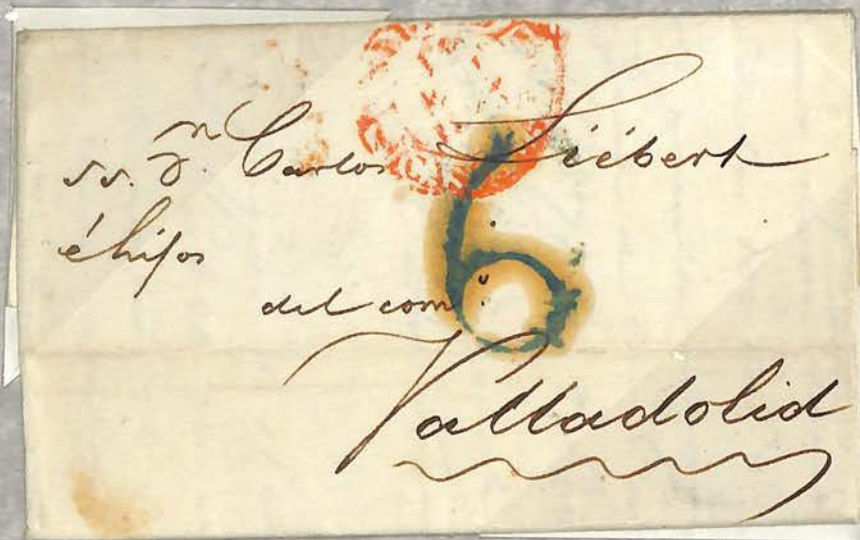 ss. Dn. Carlos Siébert
é hijos
6
del como.
Valladolid